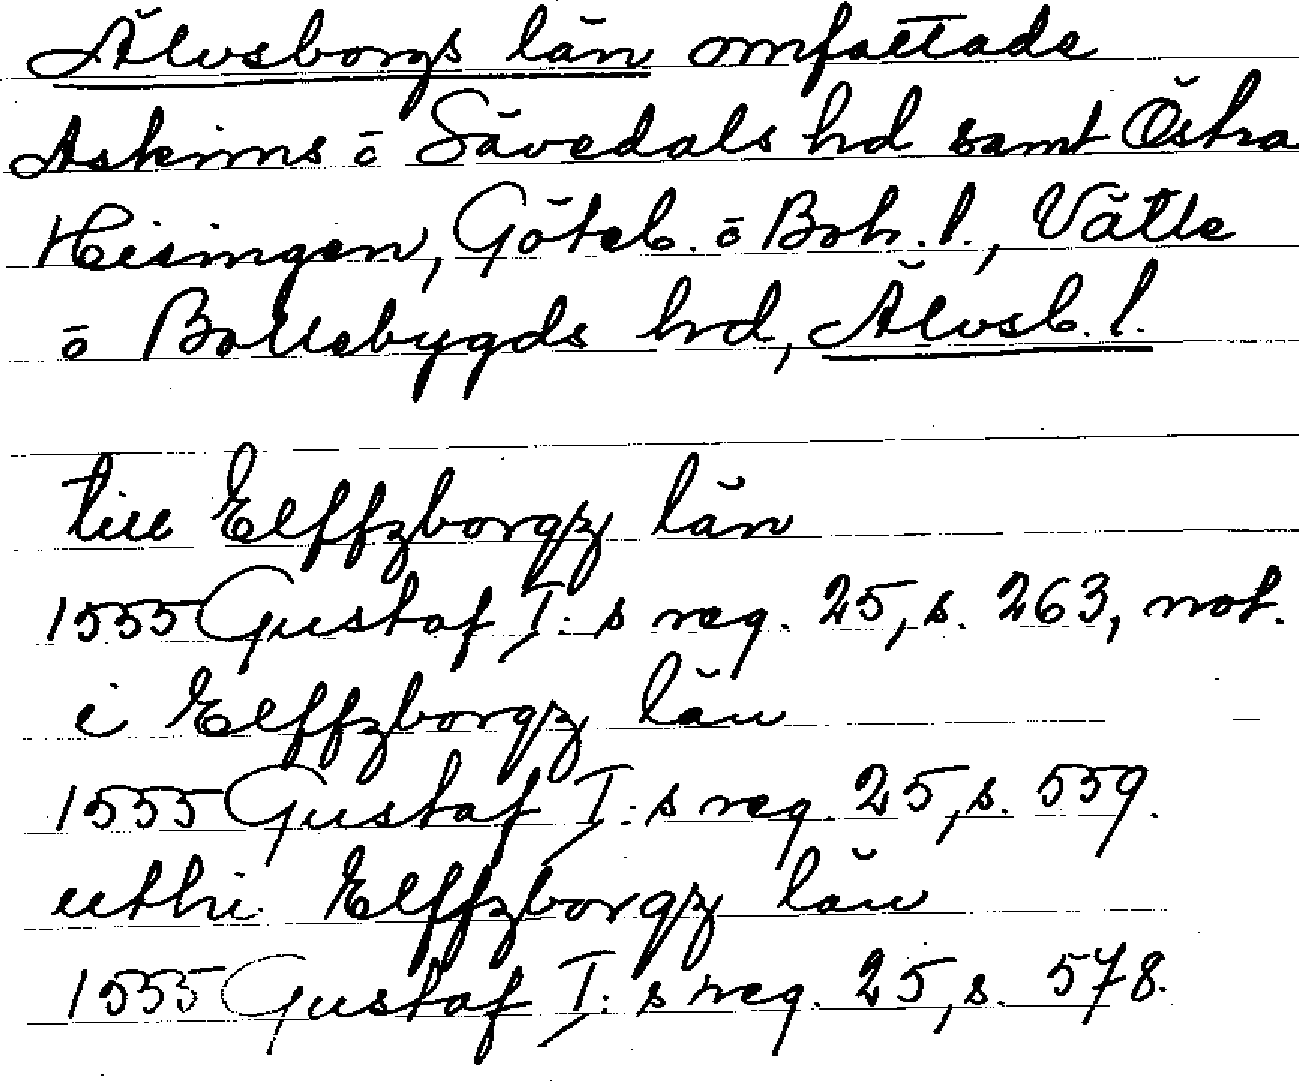 Älvsborgs län omfattade
Askims o Sävedals hd samt Östra
Hisingen, Göteb. o Boh. l., Vätle
o Bollebygds hd, Älvsb. l.
till Elffzborgz län
1555 Gustaf I:s reg. 25, s. 263, not.
i Elffzborgz län
1555 Gustaf I:s reg. 25, s. 559.
uthi Elffzborgz län
1555 Gustaf I:s reg. 25, s. 578.